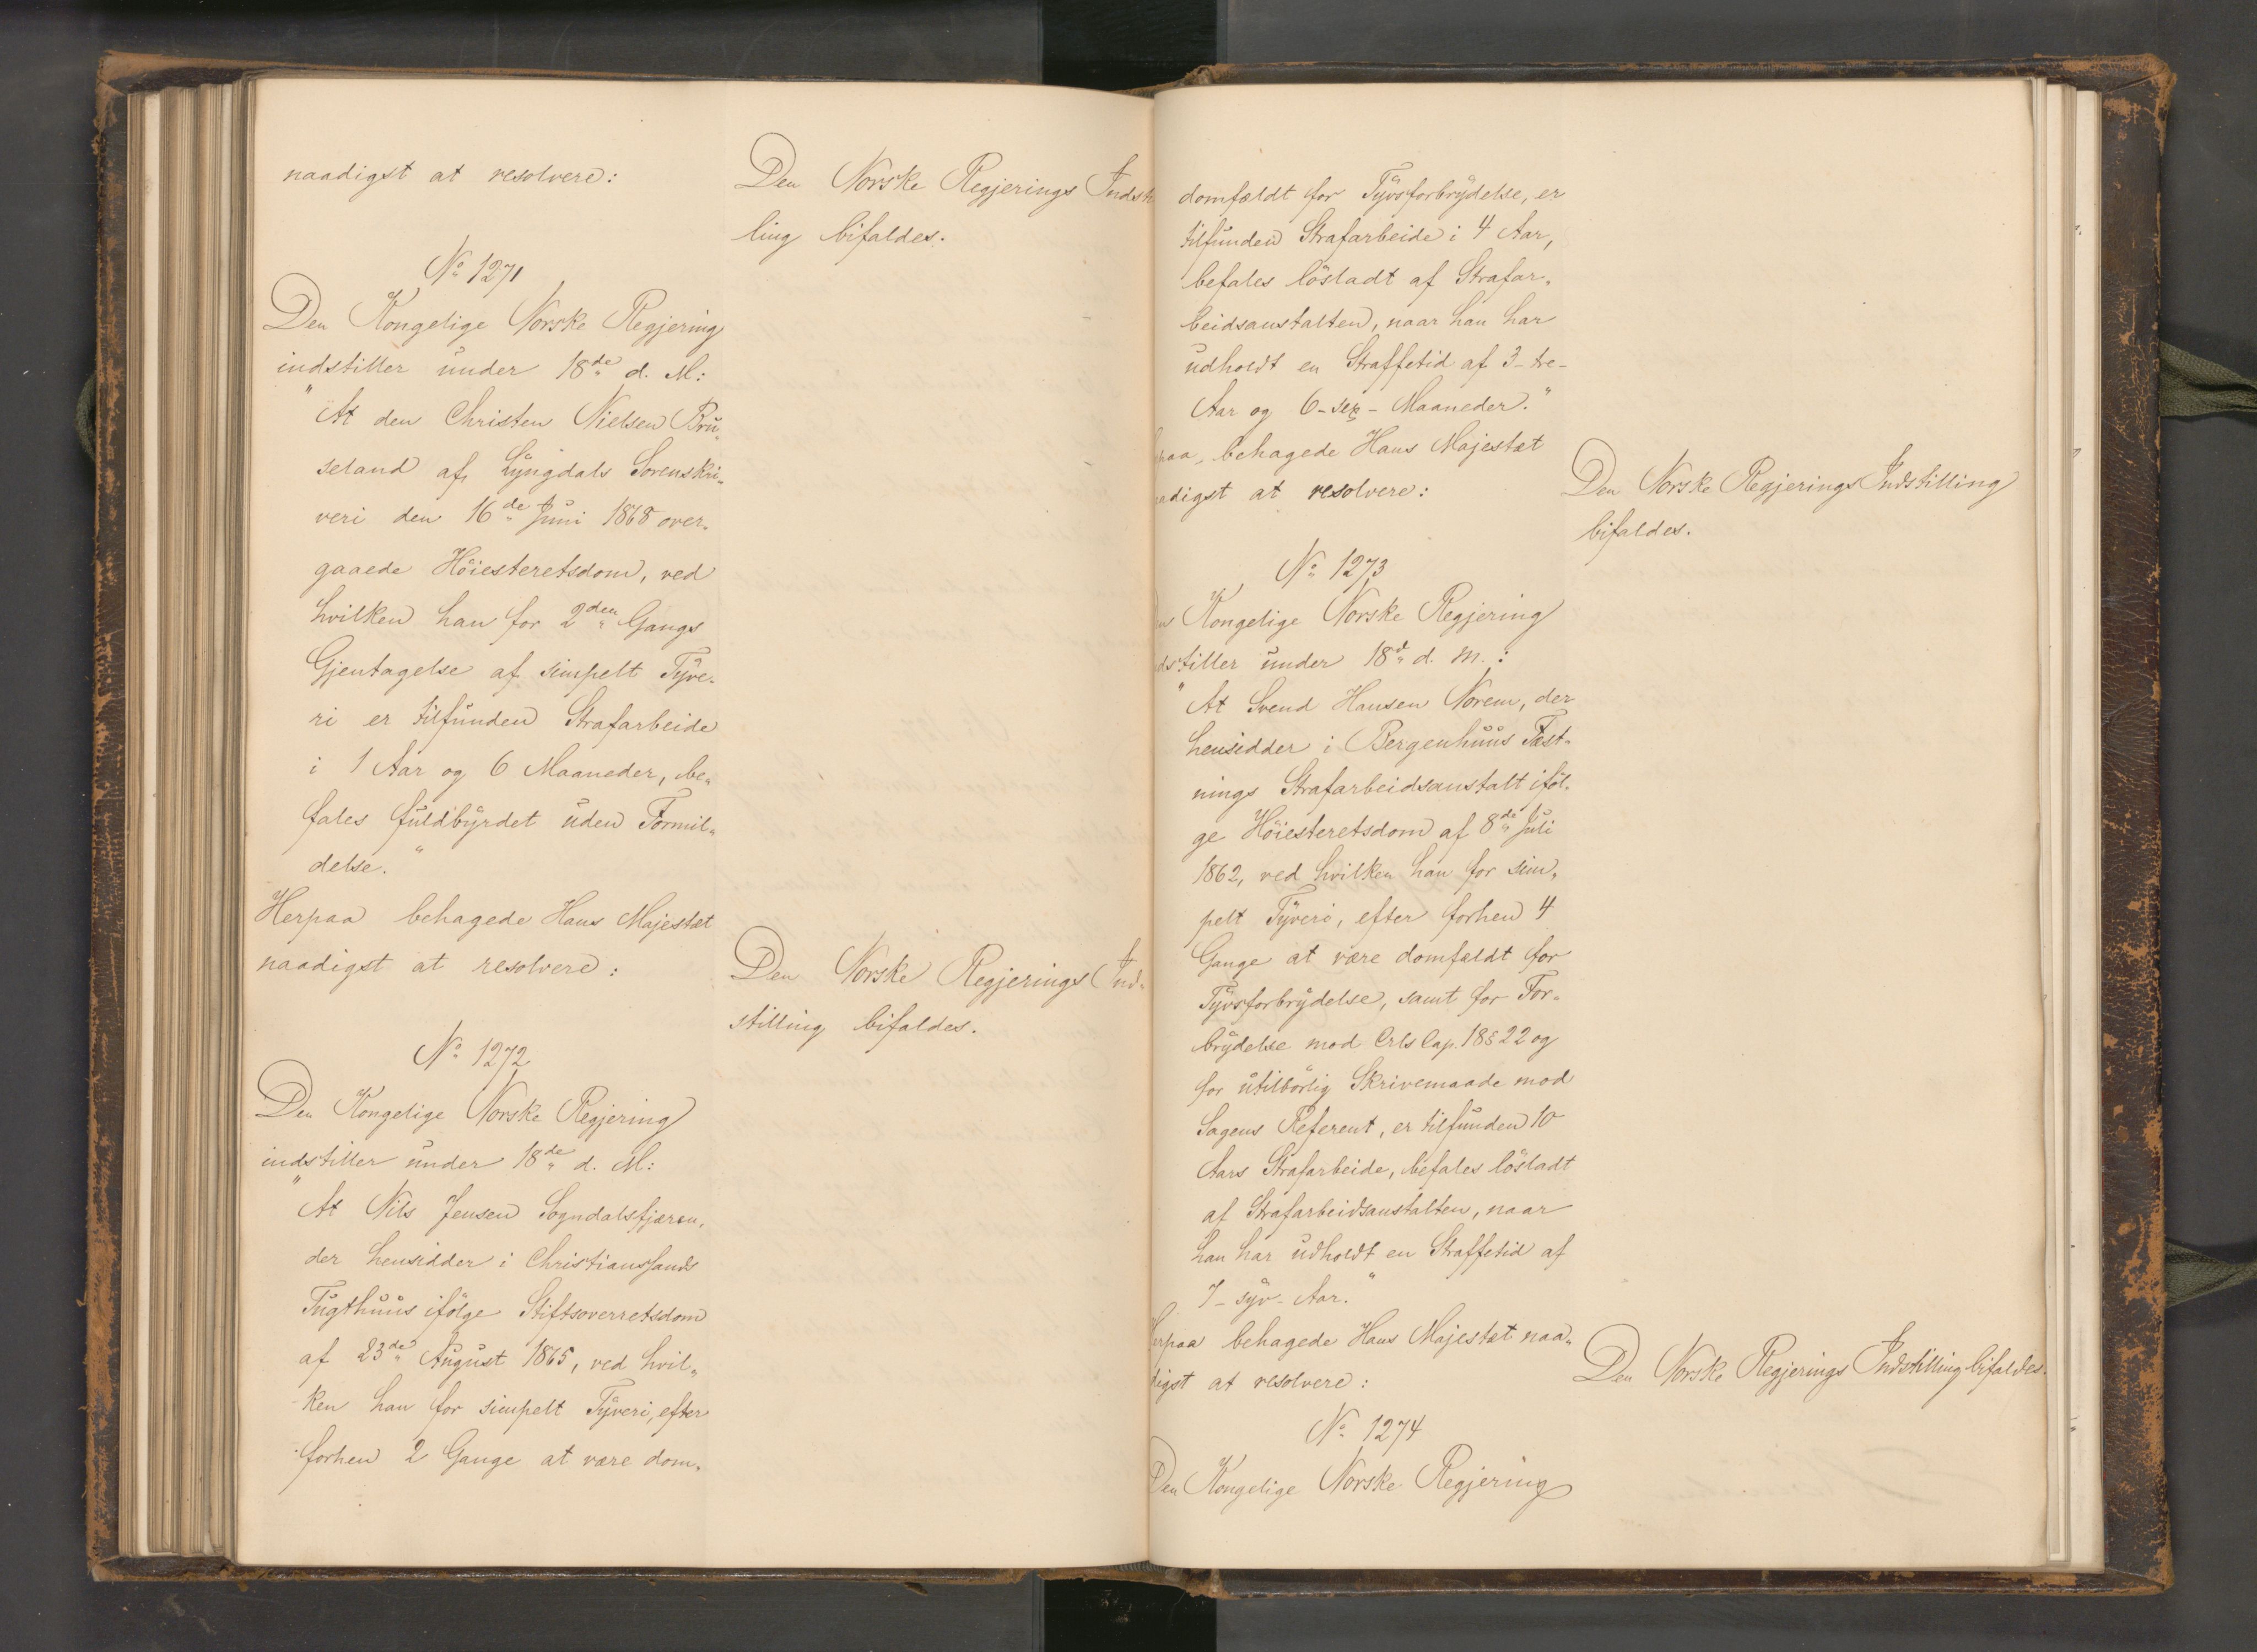 naadigst at resolvere:
Den Norske Regjerings Indstil
ling bifaldes.
No 1271
Den Kongelige Norske Regjering
indstiller under 18de d. M:
"At den Christen Nielsen Bru-
seland af Lyngdals Sorenskri-
veri den 16de Juni 1868 over-
gaaede Höiesteretsdom, ved
hvilken han for 2den Gangs
Gjentagelse af simpelt Tyve-
ri er tilfunden Strafarbeide
i 1 Aar og 6 Maaneder, be-
fales fuldbyrdet uden Formil-
delse."
Herpaa behagede Hans Majestæt
naadigst at resolvere:
Den Norske Regjerings Ind-
stilling bifaldes.
No 1272
Den Kongelige Norske Regjering
indstiller under 18de d. M:
"At Nils Jensen Sogndalsfjæren,
der hensidder i Christianssands
Tugthuus ifölge Stiftsoverretsdom
af 23de August 1865, ved hvil-
ken han for simpelt Tyveri, efter
forhen 2 Gange at være dom-
domfældt for Tyvsforbrydelse, er
tilfunden Strafarbeide i 4 Aar,
befales lösladt af Strafar-
beidsanstalten, naar han har
udholdt en Straffetid af 3 - tre -
Aar og 6 - sex - Maaneder."
paa, behagede Hans Majestæt
adigst at resolvere:
Den Norske Regjerings Indstilling
bifaldes.
No 1273
en Kongelige Norske Regjering
dstiller under 18d d. M.:
"At Svend Hansen Norem, der
hensidder i Bergenhuus Fæst-
nings Strafarbeidsanstalt iföl-
ge Höiesteretsdom af 8de Juli
1862, ved hvilken han for sim-
pelt Tyveri, efter forhen 4
Gange at være domfældt for
Tyvsforbrydelse, samt for For-
brydelse mod Crls Cap. 18 § 22 og
for utilbörlig Skrivemaade mod
Sagens Referent, er tilfunden 10
Aars Strafarbeide, befales lösladt
af Strafarbeidsanstalten, naar
han har udholdt en Straffetid af
7 - syv - Aar."
erpaa behagede Hans Majestæt naa-
digst at resolvere:
Den Norske Regjerings Indstilling bifaldes.
No 1274
Den Kongelige Norske Regjering